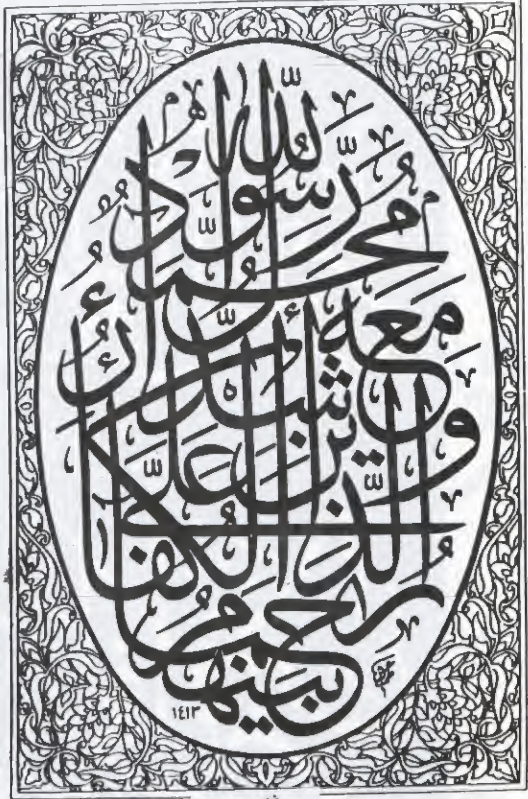 محمد رسول الله والذين معه أشداء على الكفار رحماء بينهم
١٤١٣